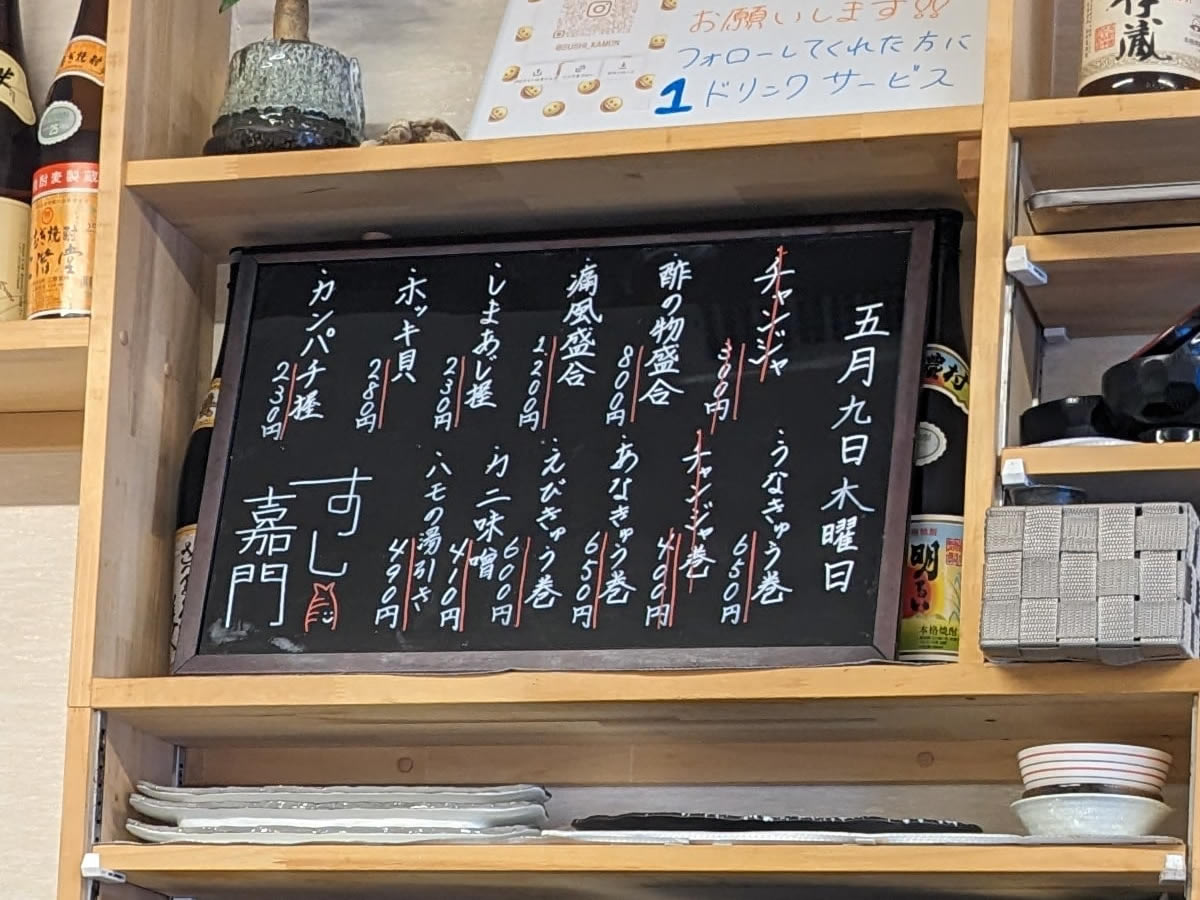 @SUSHI_KAMON
お願いします!!
フォローしてくれた方に
1ドリンクサービス
五月九日木曜日
・チャンジャ
300円
・酢の物盛合
800円
・痛風盛合
2200円
・しまあじ握
230円
・ホッキ貝
280円
・カンパチ握
230円
・うなきゅう巻
650円
・チャンジャ巻
400円
・あなきゅう巻
650円
・えびきゅう巻
600円
・カニ味噌
410円
・ハモの湯引き
490円
すし
嘉門
明るい
本格焼酎
農村